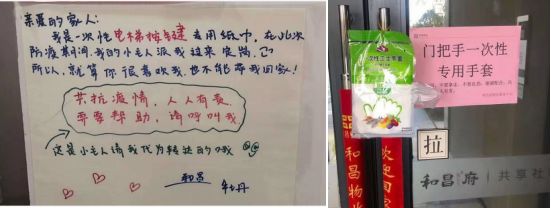 亲爱的家人:
我是一次性电梯按键专用纸巾，在此次
防疫期间，我的小主人派我过来定岗，
所以，就算你很喜欢我，也不能带我回家！
共抗疫情，人人有责
需要帮助，请呼叫我
这是小主人请我代为转达的哦
和昌 牡丹
一次性卫生手套
门把手一次性
专用手套
拉
和昌
物业
欢迎回家
和昌府 | 共享社